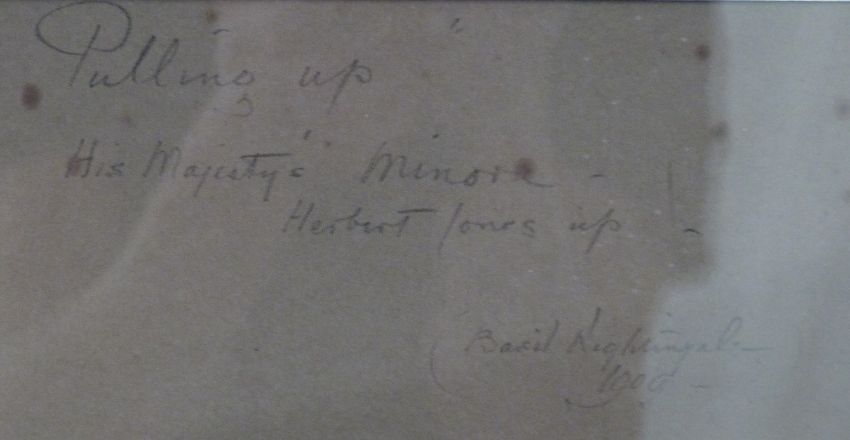 Pulling up "
His Majesty's "Minoru -
Herbert Jones up -
Basil Nightingale
1909 -